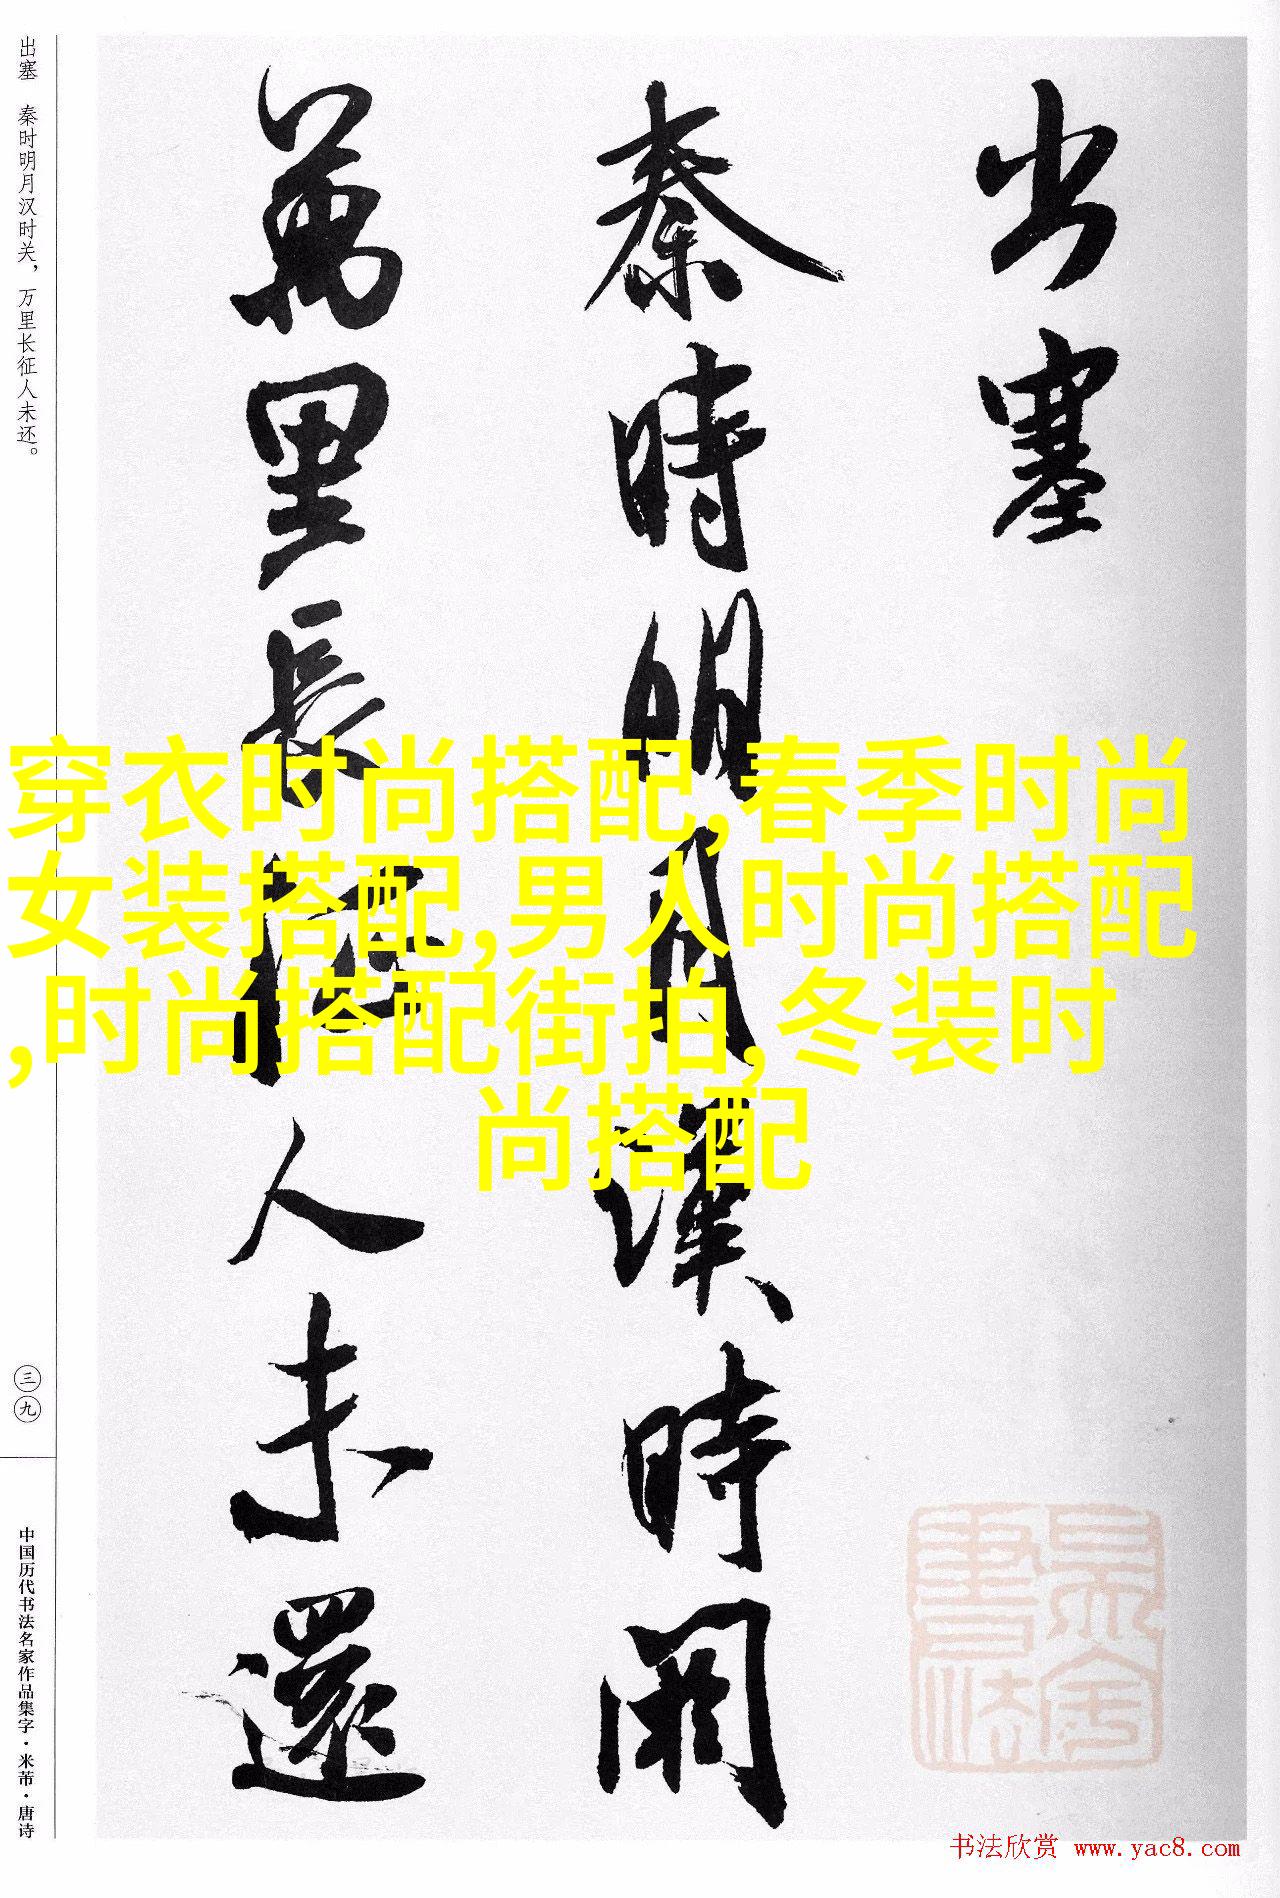 出塞
秦時明月漢時關
萬里長征人未還
出塞 秦时明月汉时关，万里长征人未还。
三九
中国历代书法名家作品集字·米芾·唐诗
穿衣时尚搭配,春季时尚
女装搭配,男人时尚搭配
,时尚搭配街拍,冬装时
尚搭配
书法欣赏 www.yac8.com